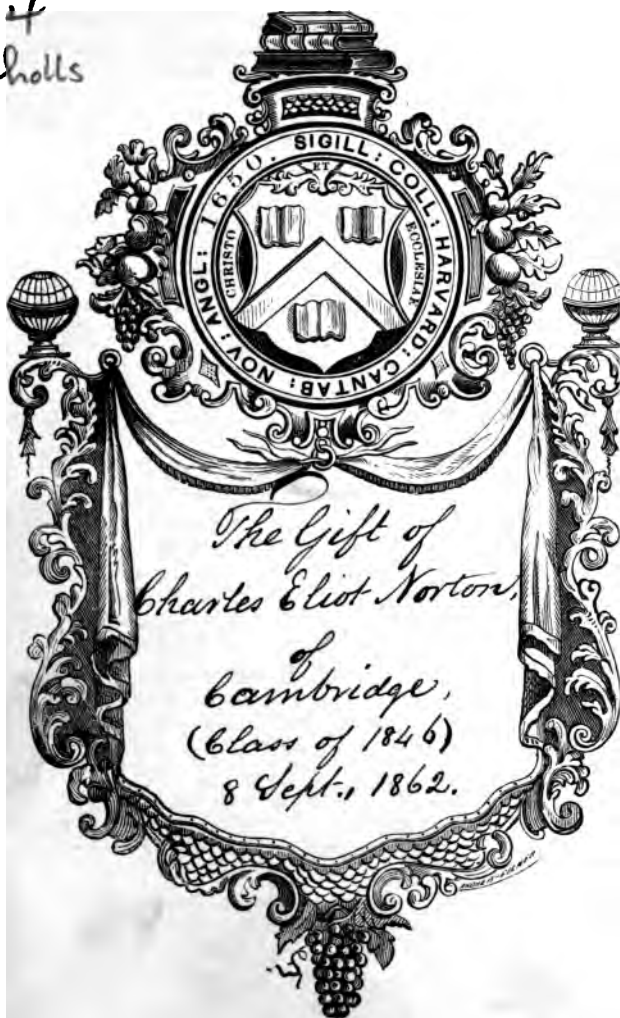 4
holls
SIGILL: COLL: HARVARD: CANTAB: NOV: ANGL: 1650.
ET
CHRISTO
ECCLESIAE
The Gift of
Charles Eliot Norton,
of
Cambridge,
(Class of 1846)
8 Sept., 1862.